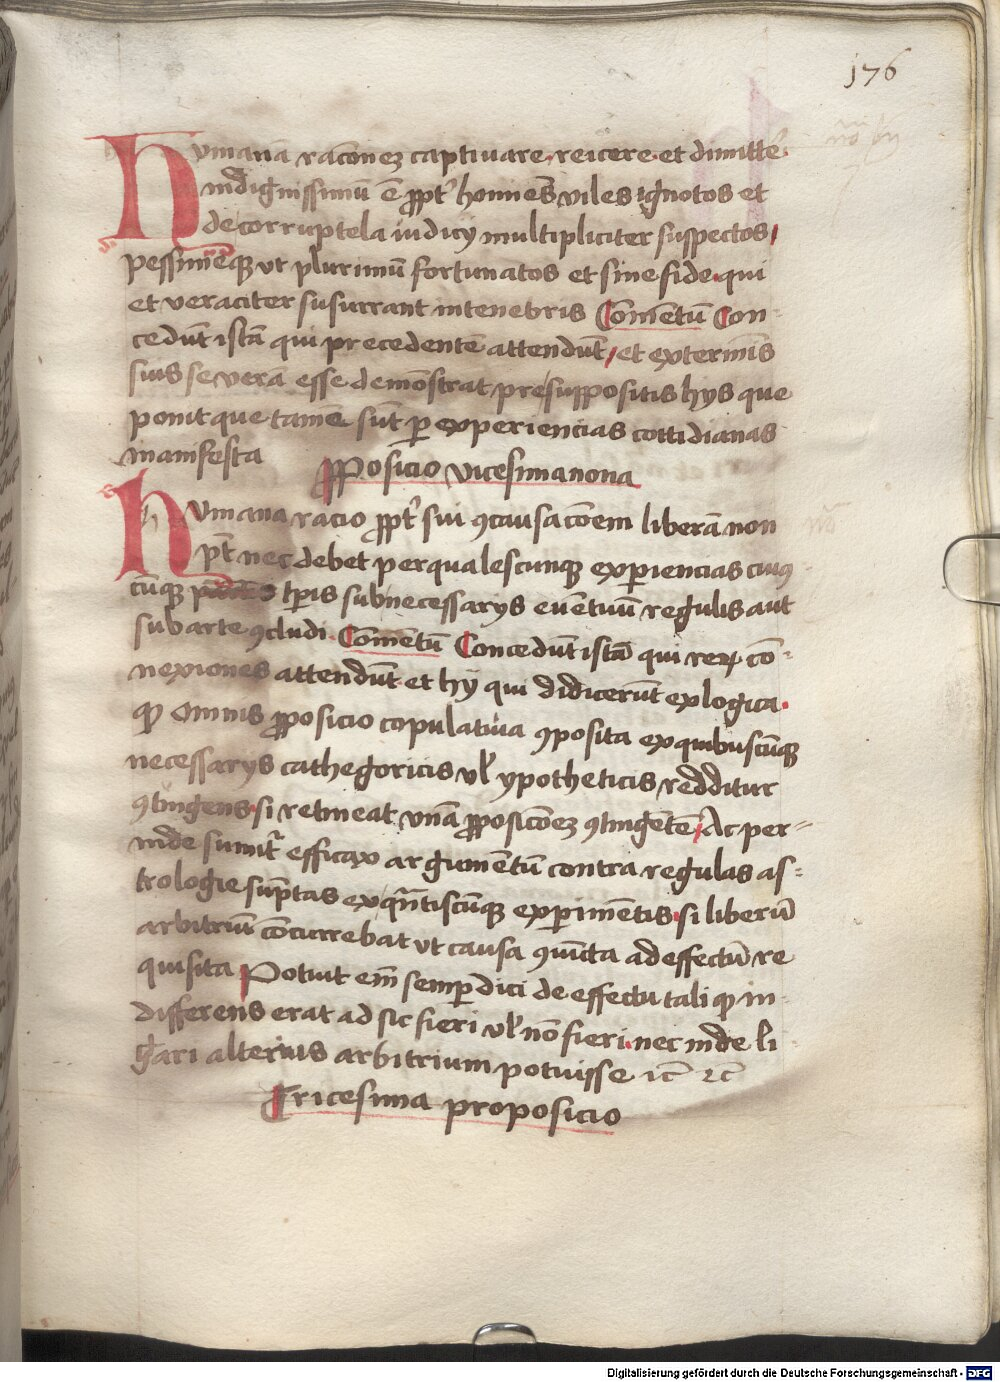 176
Humana raconez captivare reicere et dimittere
indignissimu e ppt homines viles ignotos et
de corruptela iudicy multipliciter suspectos
pessimeque ut plurimu fortunatos et sine fide qui
et veraciter susurrant in tenebris Comentu Con
cedut ista qui precedente attendut et ex terminis
suis se vera esse demonstrat presuppositis hys que
ponit que tame sut p experiencias cottidianas
manifesta pposicio vicesimanona
Humana racio ppt sui 9causacoem libera non
pt nec debet per qualescunque experiencias cuius
cuque tpis sub necessarys eventuu regulis aut
sub arte 9cludi Comentu Concedut ista qui rerum co
nexiones attendut et hy qui didicerut ex logica
quod omnis pposicio copulativa 9posita ex quibuscuque
necessarys cathegoricis vel ypotheticis redditur
9tingens si retineat una pposiconez 9tingete Ac per
inde sumitur efficax argumentu contra regulas as
trologie suptas ex quantiscuque experimentis si liberu
arbitriu concurrebat ut causa 9iuncta ad effectu re
quisita Potuit em semper dici de effectu tali quod in
differens erat ad sic fieri vel non fieri nec inde li
gari alterius arbitrium potuisse
Tricesima proposicio
Digitalisierung gefördert durch die Deutsche Forschungsgemeinschaft - DFG